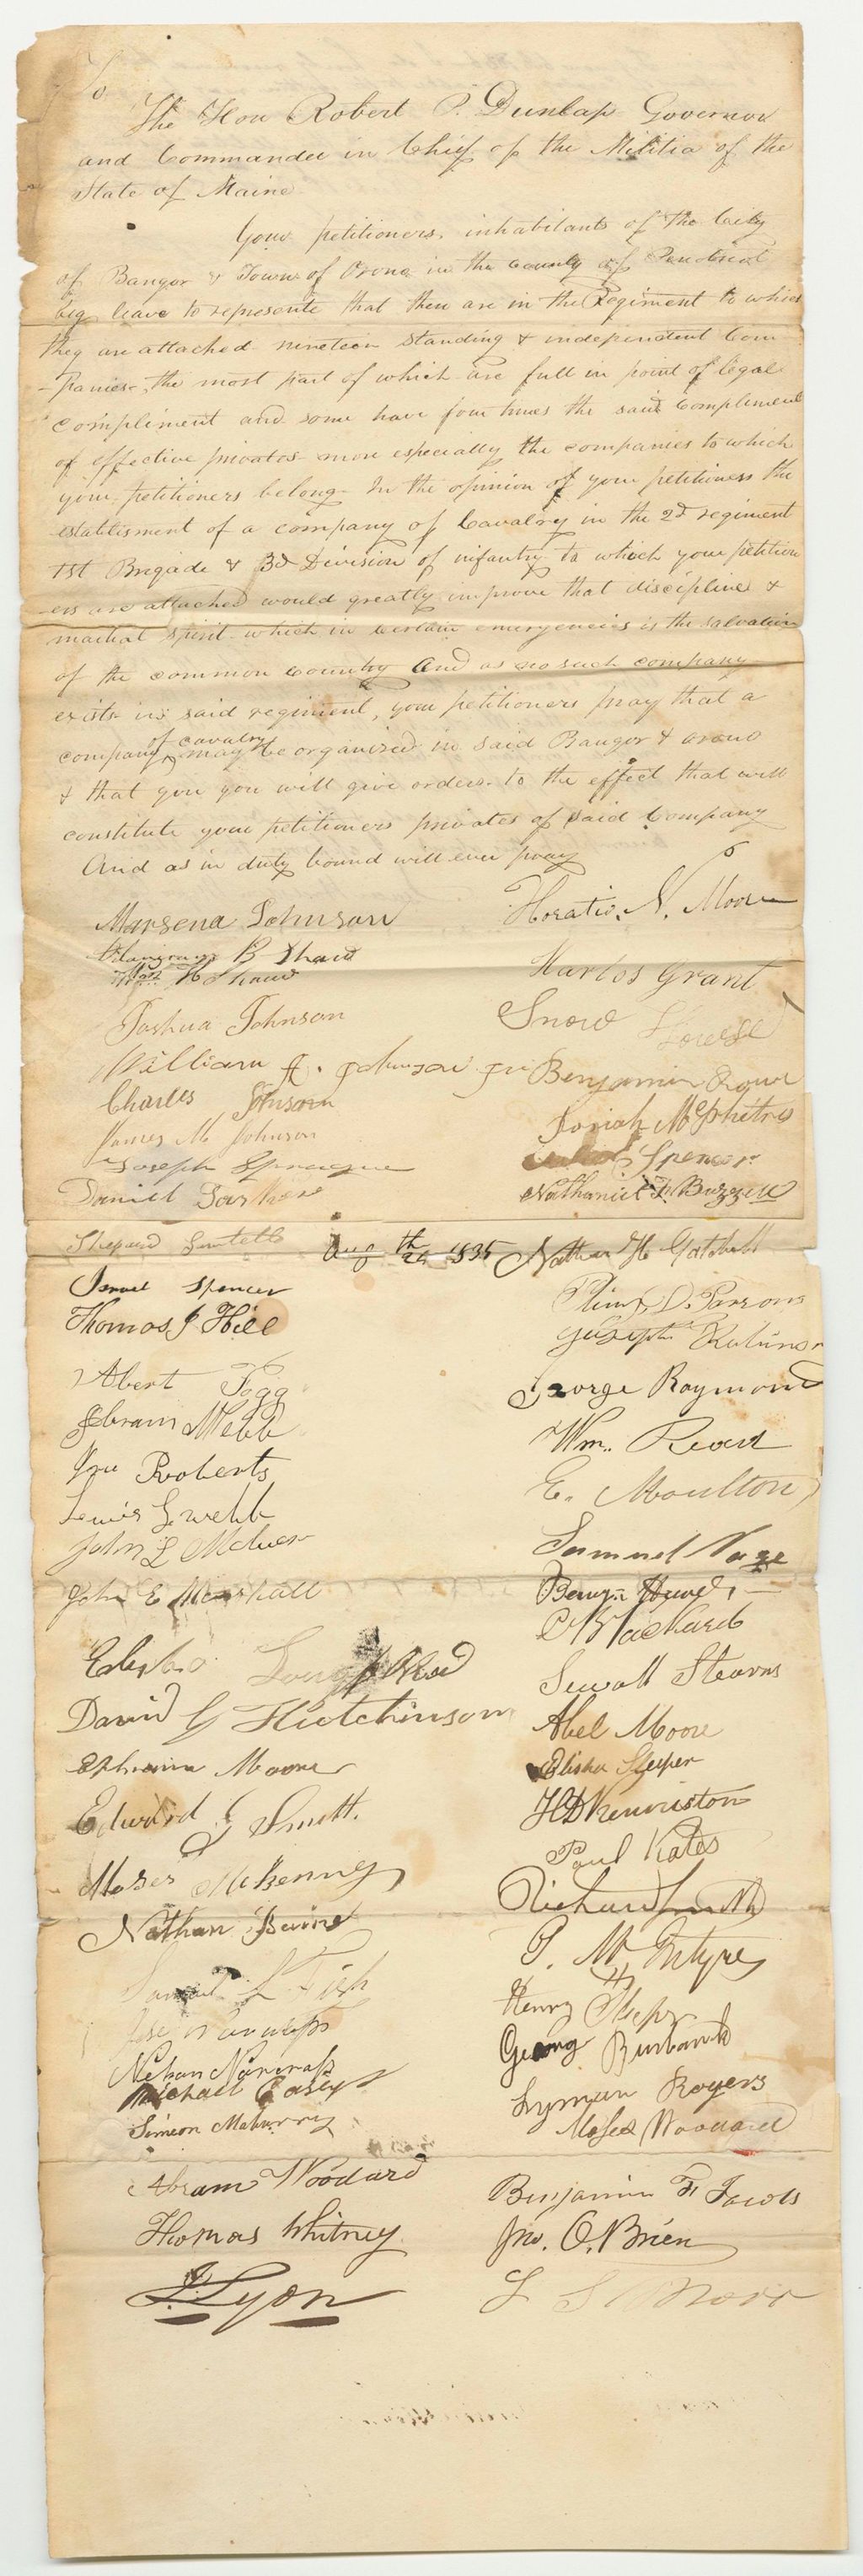 To
The Hon Robert P. Dunlap Governor
and Commander in Chief of the Militia of the
State of Maine
Your petitioners, inhabitants of the City
of Bangor & Town of Orono in the County of Penobscot
beg leave to represente that there are in the Regiment to which
they are attached nineteen standing & independent Com-
-panies, the most part of which are full in point of legal
compliment and some have four times the said Compliment
of effective privates more especially the companies to which
your petitioners belong. In the opinion of your petitioners the
establisment of a company of Cavalry in the 2d regiment
1st Brigade & 3d Division of infantry to which your petition
-ers are attached would greatly improve that discipline &
martial spirit which in certain emergencies is the salvation
of the common country And as no such company
exists in said regiment, your petitioners pray that a
company of cavalry may be organized in said Bangor & orono
& that you you will give orders to the effect that will
constitute your petitioners privates of said Company
And as in duty bound will ever pray
Marsena Johnson
Horatio. N. Moore
B Shaw
H Shaw
Karlos Grant
Joshua Johnson
Snow
William J. Johnson Jr
Benjamin
Charles Johnson
Josiah McPhetres
James M Johnson
Spencer
Joseph
Daniel
Nathaniel F. Buzzell
Shepard Sawtell
Aug 24th 1835
Nathan H Gatchell
Israel Spencer
Pliny D. Parsons
Thomas J Hill
Joseph Robinson
Albert Fogg
George Raymond
Abram Webb
Wm. Reed
Roberts
E. Moulton
Lewis G webb
Samuel
John L
Benjn
John E Marshall
Packard
Sewall Stearns
David G Hutchinson
Abel Moore
Ephraim Moore
Elisha Sleeper
Edward G Smith.
H D Kenniston
Paul Kates
Moses McKenney
Richard Smith
Nathan
P. McIntyre
Samuel L Fish
Henry
George Burbank
Nehan Norcross
Michael Casey
Lyman Rogers
Simeon
Moses Woodard
Abram Woodard
Benjamin F. Jacobs
Thomas Whitney
Jno. O.Brien
J. Lyon
L